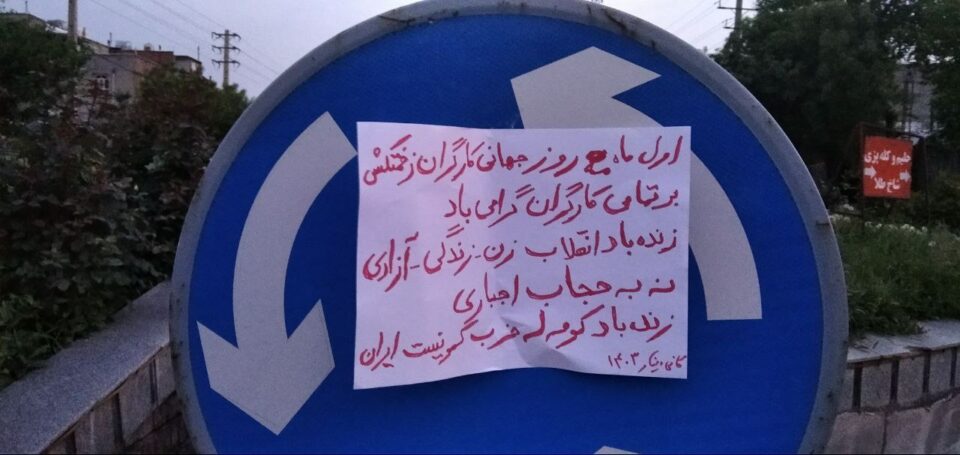 اول ماه مه روز جهانی کارگران زحمتکش
بر تمامی کارگران گرامی باد
زنده باد انقلاب زن - زندگی - آزادی
نه به حجاب اجباری
زنده باد کومه له حزب کمونیست ایران
۱۴۰۳
حلیم و کله پزی
شاخ طلا